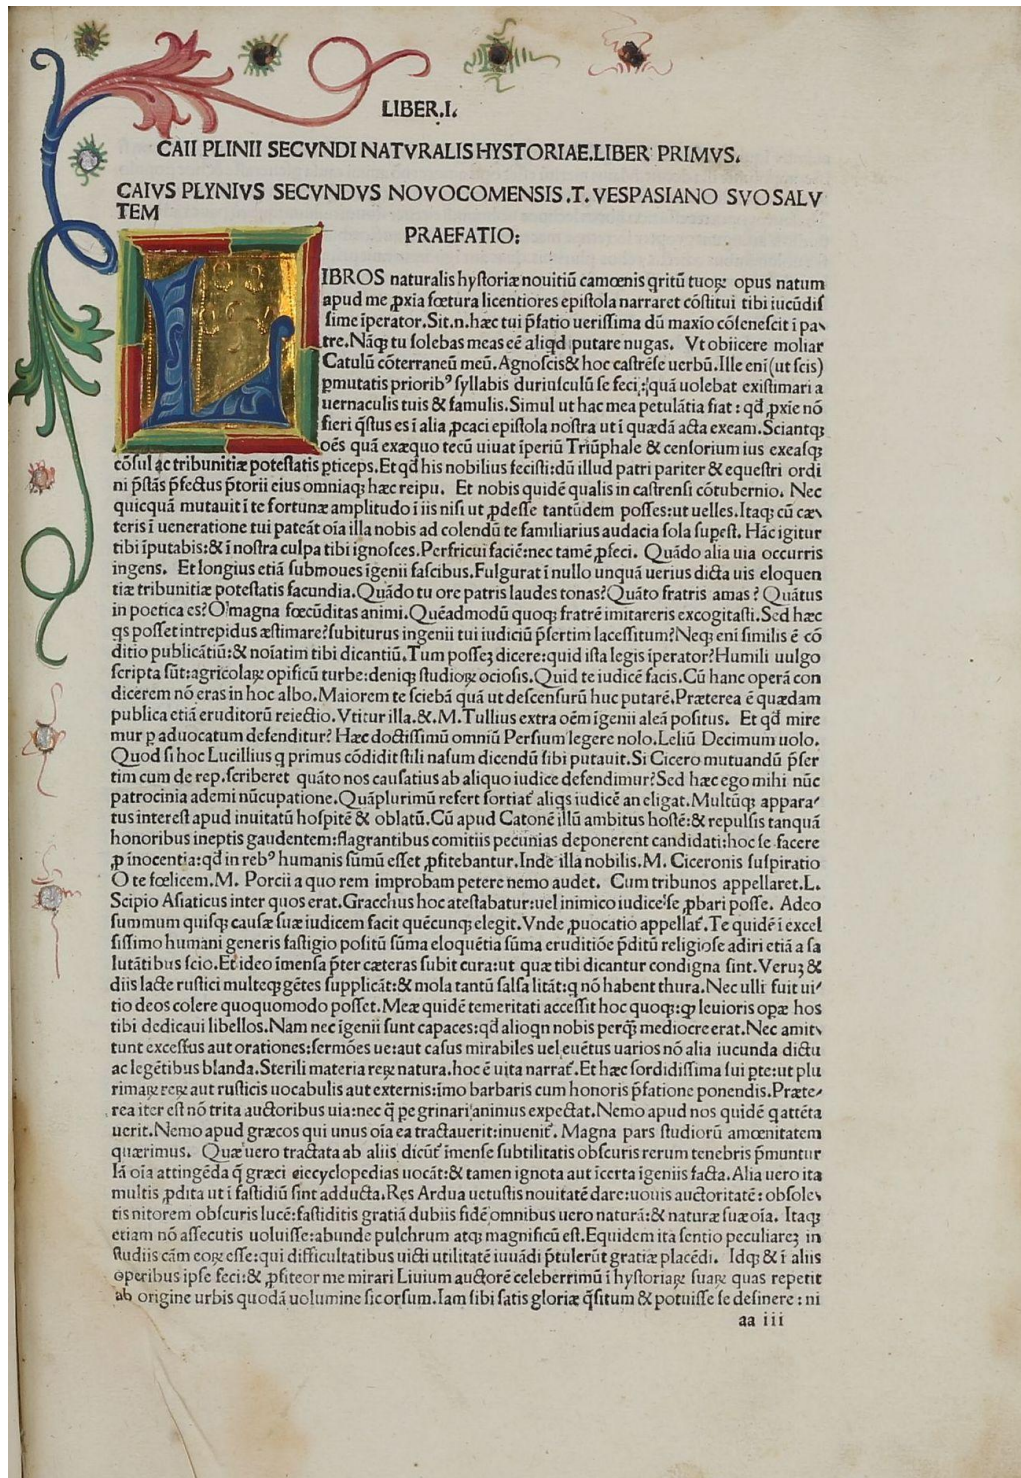 LIBER.I.
CAII PLINII SECVNDI NATVRALIS HYSTORIAE.LIBER PRIMVS.
CAIVS PLYNIVS SECVNDVS NOVOCOMENSIS .T. VESPASIANO SVO SALV
TEM
PRAEFATIO:
LIBROS naturalis hyſtoriæ nouitiũ camœnis qritũ tuoꝝ opus natum
apud me ꝓxia fœtura licentiores epiſtola narraret cõſtitui tibi iucũdiſ
ſime ĩperator.Sit.n.hæc tui p̃fatio ueriſſima dũ maxĩo cõſeneſcit ĩ pa
tre.Nãqꝫ tu ſolebas meas eẽ aliqd putare nugas. Vt obiicere moliar
Catulũ cõterraneũ meũ.Agnoſcis & hoc caſtrẽſe uerbũ.Ille enĩ (ut ſcis)
pmutatis priorib⁹ ſyllabis duriuſculũ ſe feci: quã uolebat exiſtimari a
uernaculis tuis & famulis.Simul ut hac mea petulãtia fiat : qđ ꝓxie nõ
fieri q̃ſtus es ĩ alia ꝓcaci epiſtola noſtra ut ĩ quædã acta exeam.Sciantqꝫ
oẽs quã exæquo tecũ uiuat ĩperiũ Triũphale & cenſorium ius exeaſqꝫ
cõſul ac tribunitiæ poteſtatis pticeps.Et qđ his nobilius feciſti:dũ illud patri pariter & equeſtri ordi
ni p̃ſtãs p̃fectus p̃torii eius omniaqꝫ hæc reipu. Et nobis quidẽ qualis in caſtrenſi cõtubernio. Nec
quicquã mutauit ĩ te fortunæ amplitudo ĩ iis niſi ut ꝓdeſſe tantũdem poſſes:ut uelles.Itaqꝫ cũ cæ
teris ĩ ueneratione tui pateãt oĩa illa nobis ad colendũ te familiarius audacia ſola ſupeſt. Hãc igitur
tibi ĩputabis:& ĩ noſtra culpa tibi ignoſces.Perfricui faciẽ:nec tamẽ ꝓfeci. Quãdo alia uia occurris
ingens. Et longius etiã ſubmoues ĩgenii faſcibus.Fulgurat ĩ nullo unquã uerius dicta uis eloquen
tiæ tribunitiæ poteſtatis facundia.Quãdo tu ore patris laudes tonas?Quãto fratris amas ? Quãtus
in poetica es?O magna fœcũditas animi.Quẽadmodũ quoqꝫ fratrẽ imitareris excogitaſti.Sed hæc
qs poſſet intrepidus æſtimare?ſubiturus ingenii tui iudiciũ p̃ſertim laceſſitum?Neqꝫ enĩ ſimilis ẽ cõ
ditio publicãtiũ:& noĩatim tibi dicantiũ.Tum poſſeꝫ dicere:quid iſta legis ĩperator?Humili uulgo
ſcripta ſũt:agricolaꝝ opificũ turbe:deniqꝫ ſtudioꝝ ocioſis.Quid te iudicẽ facis.Cũ hanc operã con
dicerem nõ eras in hoc albo.Maiorem te ſciebã quã ut deſcenſurũ huc putarẽ.Præterea ẽ quædam
publica etiã eruditorũ reiectio.Vtitur illa.&.M.Tullius extra oẽm ĩgenii aleã poſitus. Et qđ mire
mur p aduocatum defenditur? Hæc doctiſſimũ omniũ Perſium legere nolo.Leliũ Decimum uolo.
Quod ſi hoc Lucillius q primus cõdidit ſtili naſum dicendũ ſibi putauit.Si Cicero mutuandũ p̃ſer
tim cum de rep.ſcriberet quãto nos cauſatius ab aliquo iudice defendimur?Sed hæc ego mihi nũc
patrocinia ademi nũcupatione.Quãplurimũ refert ſortiat̃ aliqs iudicẽ an eligat.Multũqꝫ appara
tus intereſt apud inuitatũ hoſpitẽ & oblatũ.Cũ apud Catonẽ illũ ambitus hoſtẽ:& repulſis tanquã
honoribus ineptis gaudentem:flagrantibus comitiis pecunias deponerent candidati:hoc ſe facere
ꝓ inocentia:qđ in reb⁹ humanis ſũmũ eſſet ꝓfitebantur.Inde illa nobilis.M. Ciceronis ſuſpiratio
O te fœlicem.M. Porcii a quo rem improbam petere nemo audet. Cum tribunos appellaret.L.
Scipio Aſiaticus inter quos erat.Gracchus hoc ateſtabatur:uel inimico iudice ſe ꝓbari poſſe. Adeo
ſummum quiſqꝫ cauſæ ſuæ iudicem facit quẽcunqꝫ elegit.Vnde ꝓuocatio appellat̃.Te quidẽ ĩ excel
ſiſſimo humani generis faſtigio poſitũ ſũma eloquẽtia ſũma eruditiõe p̃ditũ religioſe adiri etiã a ſa
lutãtibus ſcio.Et ideo ĩmenſa p̃ter cæteras ſubit cura:ut quæ tibi dicantur condigna ſint.Veruꝫ &
diis lacte ruſtici multeqꝫ gẽtes ſupplicãt:& mola tantũ ſalſa litãt:q nõ habent thura.Nec ulli fuit ui
tio deos colere quoquomodo poſſet.Meæ quidẽ temeritati acceſſit hoc quoqꝫ:ꝙ leuioris opæ hos
tibi dedicaui libellos.Nam nec ĩgenii ſunt capaces:qđ alioqn nobis perq̃ꝫ mediocre erat.Nec amit
tunt exceſſus aut orationes:ſermões ue:aut caſus mirabiles uel euẽtus uarios nõ alia iucunda dictu
ac legẽtibus blanda.Sterili materia reꝝ natura.hoc ẽ uita narrat̃.Et hæc ſordidiſſima ſui pte:ut plu
rimaꝝ reꝝ aut ruſticis uocabulis aut externis:ĩmo barbaris cum honoris p̃fatione ponendis.Præte
rea iter eſt nõ trita auctoribus uia:nec q̃ pegrinari animus expectat.Nemo apud nos quidẽ q attẽta
uerit.Nemo apud græcos qui unus oĩa ea tractauerit:inuenit̃. Magna pars ſtudiorũ amœnitatem
quærimus. Quæ uero tractata ab aliis dicũt̃ ĩmenſe ſubtilitatis obſcuris rerum tenebris p̃muntur
Iã oĩa attingẽda q̃ græci eiccyclopedias uocãt:& tamen ignota aut ĩcerta ĩgeniis facta.Alia uero ita
multis ꝓdita ut ĩ faſtidiũ ſint adducta.Res Ardua uetuſtis nouitatẽ dare:uouis auctoritatẽ: obſole
tis nitorem obſcuris lucẽ:faſtiditis gratiã dubiis fidẽ omnibus uero naturã:& naturæ ſuæ oĩa. Itaqꝫ
etiam nõ aſſecutis uoluiſſe:abunde pulchrum atqꝫ magnificũ eſt.Equidem ita ſentio peculiareꝫ in
ſtudiis cãm eoꝝ eſſe:qui difficultatibus uicti utilitatẽ iuuãdi p̃tulerũt gratiæ placẽdi. Idqꝫ & ĩ aliis
operibus ipſe feci:& ꝓfiteor me mirari Liuium auctorẽ celeberrimũ ĩ hyſtoriaꝝ ſuaꝝ quas repetit
ab origine urbis quodã uolumine ſic orſum.Iam ſibi ſatis gloriæ q̃ſitum & potuiſſe ſe deſinere : ni
aa iii